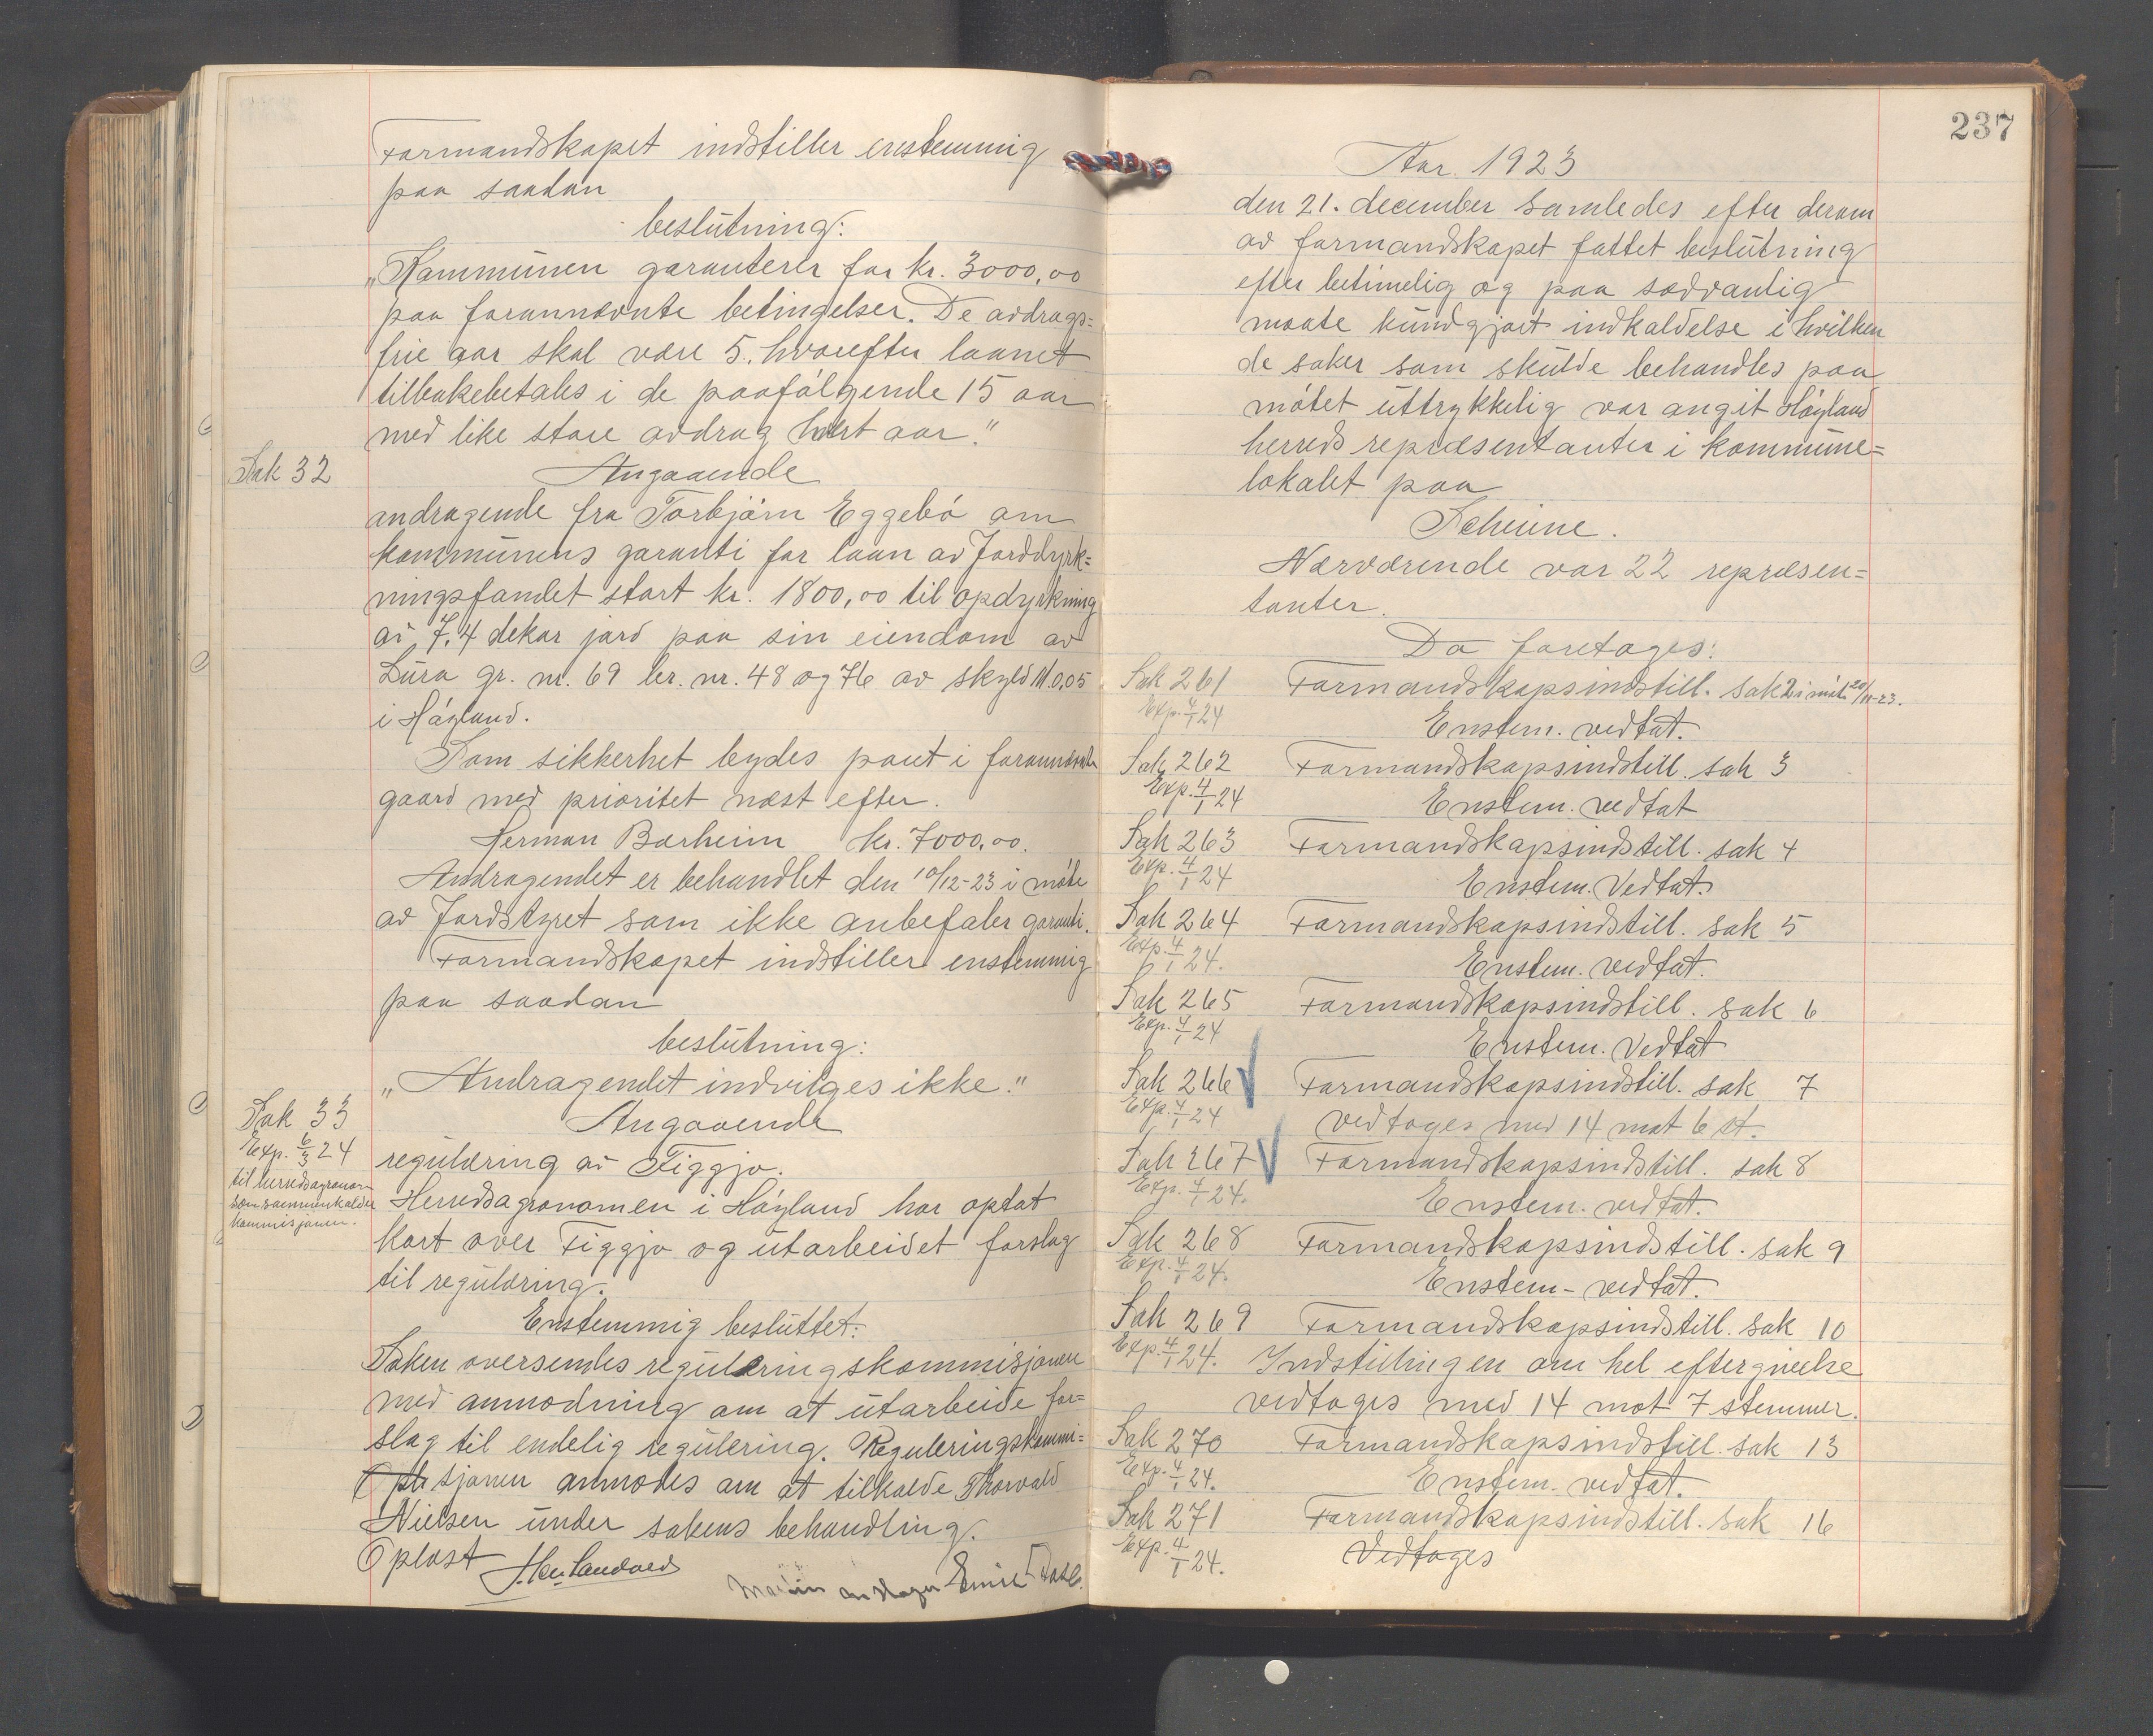 Formandskapet indstiller enstemmig
paa saadan
beslutning:
„Kommunen garanterer for kr. 3000,00
paa forannævnte betingelser. De avdrags=
frie aar skal være 5, hvorefter laanet
tilbakebetales i de paafølgende 15 aar
med like store avdrag hvert aar."
Sak 32
Angaaende
andragende fra Torbjørn Eggebø om
kommunens garanti for laan av Jorddyrk=
ningsfondet stort kr. 1800,00 til opdyrkning
av 7.4 dekar jord paa sin eiendom av
Lura gr. nr. 69 br. nr. 48 og 76 av skyld M. 0,05
i Høyland.
Som sikkerhet bydes pant i forannævnte
gaard med prioritet næst efter.
Herman Bærheim kr. 7000,00.
Andragendet er behandlet den 10/12-23 i møte
av Jordstyret som ikke anbefaler garanti.
Formandskapet indstiller enstemmig
paa saadan
beslutning:
„Andragendet indvilges ikke."
Sak 33
Exp. 6/3 24
til herredsagronom
som sammenkalder
kommisjonen.
Angaaende
regulering av Figgjo.
Herredsagronomen i Høyland har optat
kart over Figgjo og utarbeidet forslag
til regulering.
Enstemmig besluttet:
Saken oversendes reguleringskommisjonen
med anmodning om at utarbeide for=
slag til endelig regulering. Reguleringskommi=
sjonen anmodes om at tilkalde Thorvald
Nielsen under sakens behandling.
Oplæst

237
Aar. 1923
den 21. december samledes efter derom
av formandskapet fattet beslutning
efter betimelig og paa sedvanlig
maate kundgjort indkaldelse i hvilken
de saker som skulde behandles paa
møtet uttrykkelig var angit Høyland
herreds repræsentanter i kommune=
lokalet paa
Scheime.
Nærværende var 22 repræsen=
tanter.
Da foretages:
Sak 261 Formandskapsindstill. sak 2 i møte 20/11-23.
Exp. 4/1 24
Enstem. vedtat.
Sak 262 Formandskapsindstill. sak 3
Exp. 4/1 24
Enstem. vedtat
Sak 263 Formandskapsindstill. sak 4
Exp. 4/1 24
Enstem. Vedtat.
Sak 264 Formandskapsindstill. sak 5
Exp. 4/1 24.
Enstem. vedtat.
Sak 265 Formandskapsindstill. sak 6
Exp. 4/1 24
Enstem. Vedtat
Sak 266 Formandskapsindstill. sak 7
Exp. 4/1 24
Vedtages med 14 mot 6 st.
Sak 267 Formandskapsindstill. sak 8
Exp. 4/1 24.
Enstem. vedtat.
Sak 268 Formandskapsindstill. sak 9
Exp. 4/1 24.
Enstem- vedtat.
Sak 269 Formandskapsindstill. sak 10
Exp. 4/1 24. Indstillingen om hel eftergivelse
vedtages med 14 mot 7 stemmer.
Sak 270 Formandskapsindstill. sak 13
Exp. 4/1 24.
Enstem. vedtat.
Sak 271 Formandskapsindstill. sak 16
Exp. 4/1 24.
Vedtages